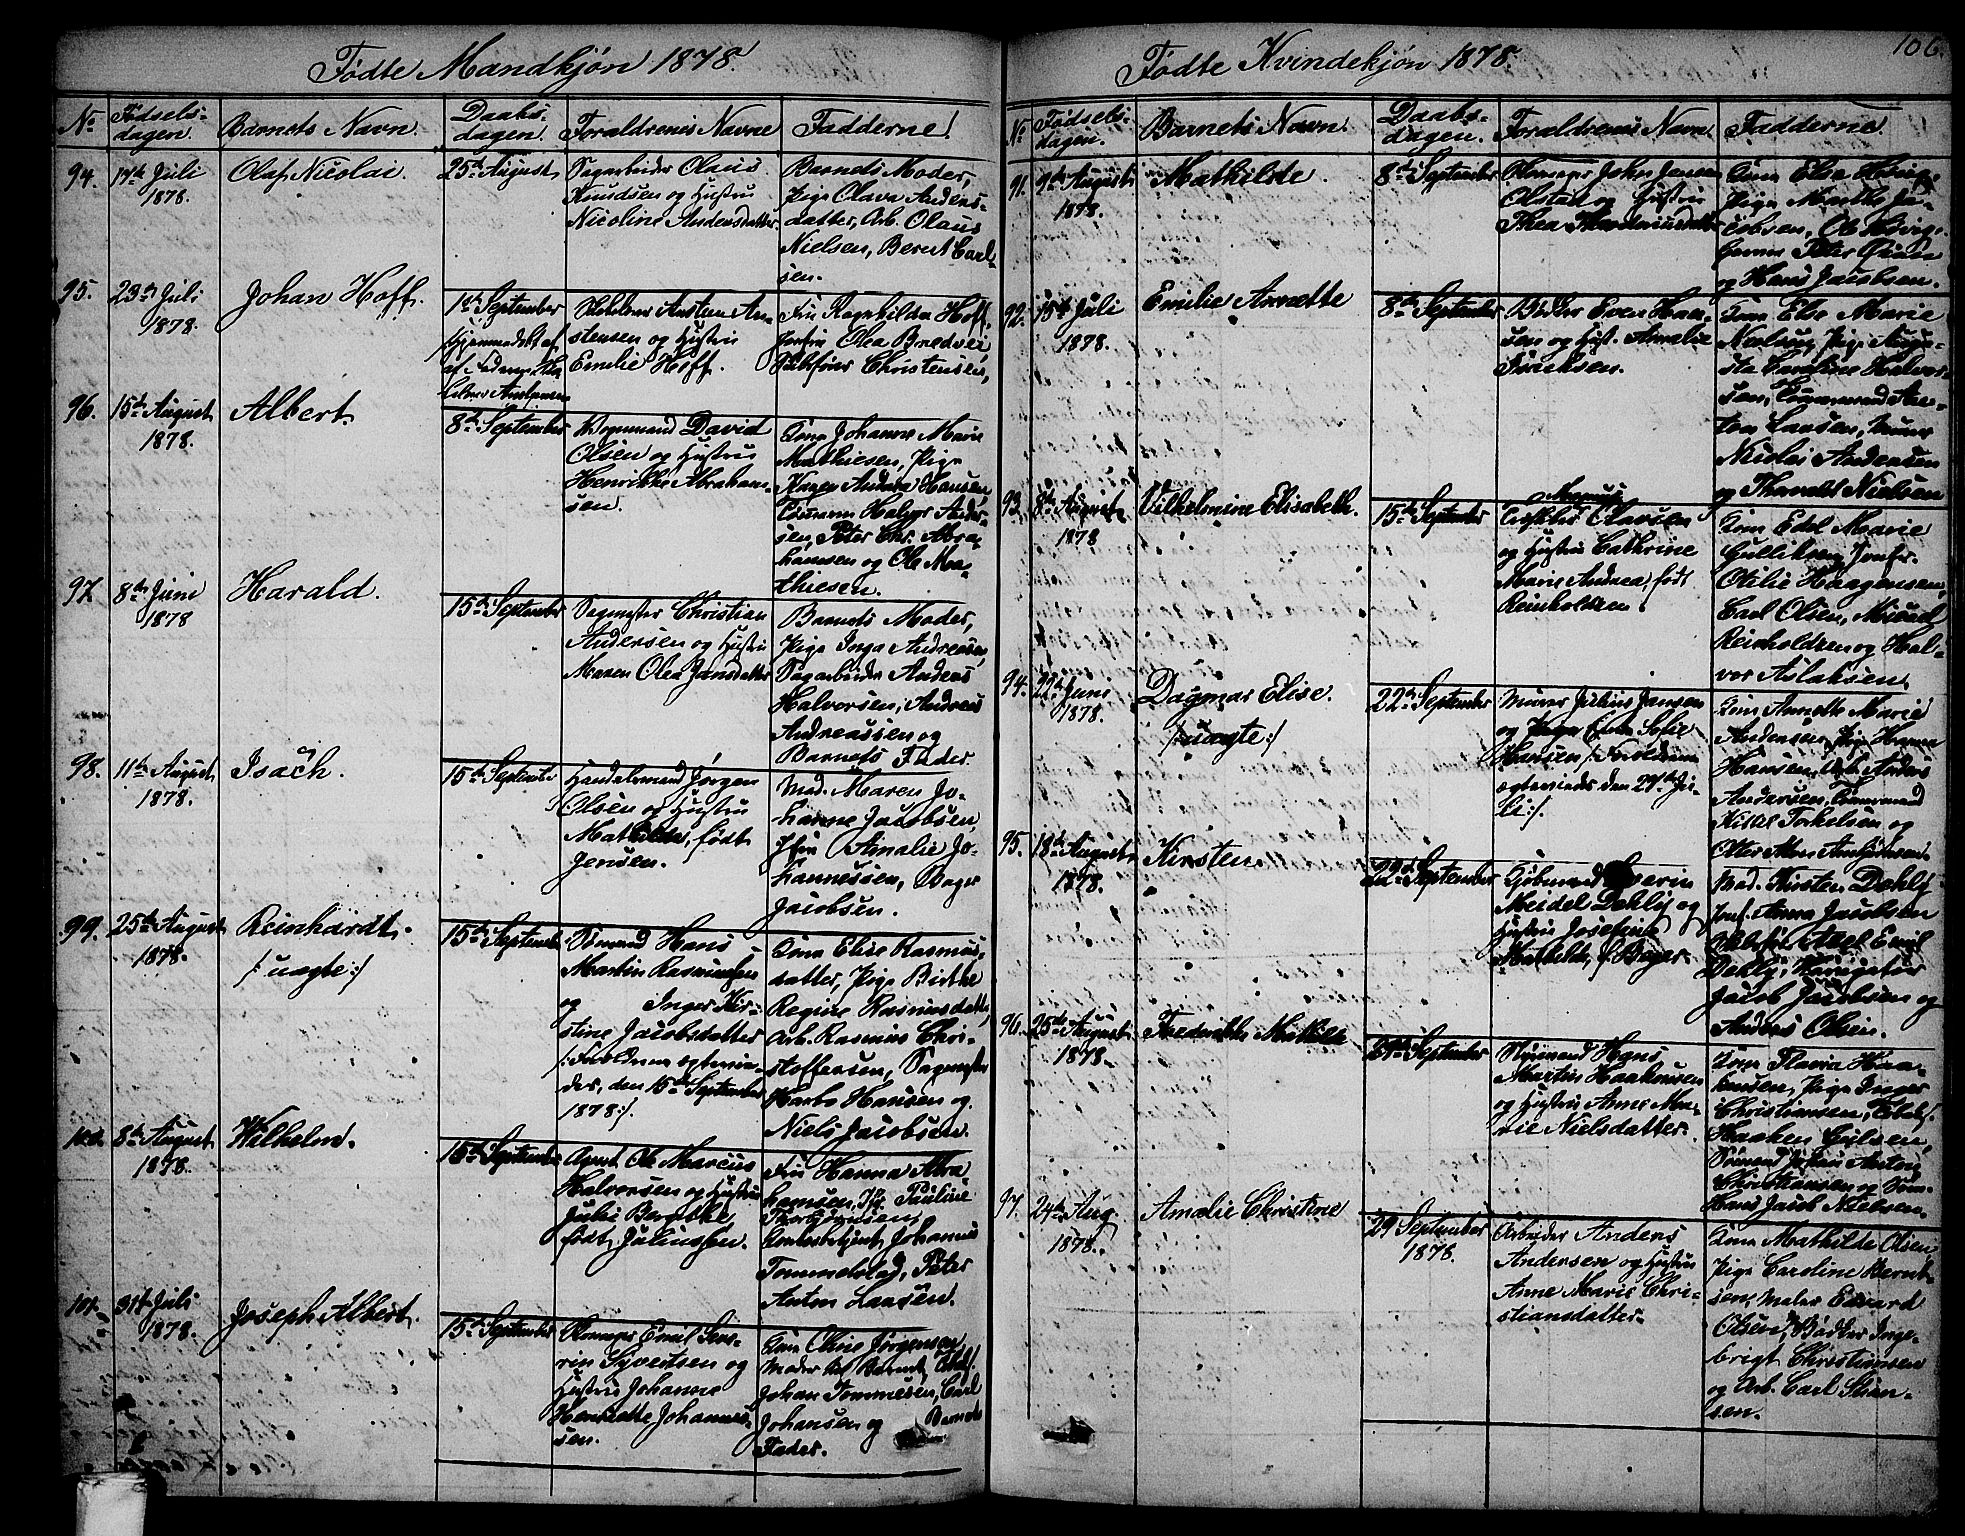 106.
Fødte Mandkjøn 1878.
No
Fødsels-
dagen.
Barnets Navn.
Daabs-
dagen.
Foraldrenes Navne
Fadderne!
94.
17de Juli
1878.
Olaf Nicolai.
25de August
Sagarbeider Olaus
Knudsen og Hustru
Nicoline Andersdatter.
Barnets Moder,
Pige Olava Anders-
datter, Arb. Olaus
Nielsen, Bernt Carl-
sen.
95.
23de Juli
1878.
Johan Hoff.
1ste September
Hjemmedøbt af
Austen An-
stensen og Hustru
Emilie Hoff.
Fru Ragnhilda Hoff,
Jomfru Olea Bredvei
Skibsfører Christensen,
96.
15de August
1878.
Albert.
8de September
Vognmand David
Olsen og Hustru
Henrikke Abraham-
sen.
Kone Johanne Marie
Mathiesen, Pige
Karen Andrea Hansen,
Tømmerm Halvor Ander-
sen, Peter Chr. Abra-
hamsen og Ole Ma-
thiesen.
97
8de Juni
1878
Harald.
15de September
Sagmester Christian
Andersen og Hustru
Maren Olea Jansdatter
Barnets Moder,
Pige Inga Andreasen,
Sagarbeider Anders
Halvorsen, Andreas
Andreassen og
Barnets Fader
98.
11te August
1878.
Isach.
15de September
Handelsmand Jørgen
Olsen og Hustru
Mathilde, født
Jensen.
Mad. Maren Jo-
hanne Jacobsen,
Jfru Amalie Jo-
hannessen, Bager
Jacobsen.
99.
25de August
1878.
Reinhardt.
/:uægte:/
15de September
Sømand Hans
Martin Rasmussen
og Inger Kir-
stine Jacobsdatter
/:Foreldrene ægtevie-
des, den 15de September
1878:/.
Kone Elise Rasmus-
datter, Pige Birthe
Regine Rasmusdatter,
Arb. Rasmus Chri-
stoffersen, Sagmester
Harbo Hansen og
Niels Jacobsen.
100.
8de August
1878.
Wilhelm.
15de September
Agent Ole Marcus
Halvorsen og Hustru
Julie Bergithe
født Juliussen.
Fru Hanna Abra-
hamsen, Pige Pauline
Thorbjørnsen
Johannes
Tommelstad, Peter
Anton Laasen.
101.
31te Juli
1878.
Joseph Albert.
15de September
Skomager Emil Seve-
rin Syvertsen og
Hustru Johanne
Henriette Johannes-
sen.
Kone Oline Jørgensen,
Moder til Barnet,
Johan Tommesen, Carl
Johansen og Barnets
Fader.
Fødte Kvindekjøn 1878
No
Fødsels-
dagen.
Barnets Navn.
Daabs-
dagen.
Foraldrenes Navn.
Fadderne.
91.
9de August
1878.
Mathilde.
8de September
Skomager John Jensen
Olstad og Hustru
Thea
Kone Elise
Pige Marthe Ja-
cobsen, Ole
Peter
og Hans Jacobsen.
92.
15de Juli
1878.
Emilie Annette
8de September
Bødker Even Han-
sen og Hust. Amalie
Eriksen.
Kone Else Marie
Nielsen, Pige Augu-
sta Caroline Halvor-
sen, Tømmermand An-
ton Laasen, Murer
Nicolai Andersen
og Tharald Nielsen
93.
8de August
1878
Vilhelmine Elisabeth.
15de September
Magnus
Olavsen
og Hustru Cathrine
Marie Andrea, født
Reinholdsen
Kone Edel Marie
Gulliksen, Jomfr.
Otilie Haagensen,
Carl Olsen,
Reinholdsen og Hal-
vor Aslaksen.
94.
22de Juni
1878.
Dagmar Elise.
/:uægte:/
22de September
Murer Julius Jansen
og Pige Sofie
Hansen /:Foreldrene
ægteviedes den 21de Ju-
li:/.
Kone Annette Marie
Andersen, Pige Hanna
Hansen, Arb. Anders
Andersen, Tømmermand
Kittel Torkelsen og
95.
18de August
1878.
Kirsten.
22de September
Kjøbmand Severin
Meidel Dahly og
Hustru Josefine
Mathilde, f. Bager.
Mad. Kirsten Dahly
Jomf. Anna Jacobsen
Axel Emil
Dahly, Navigatør
Jacob Jacobsen og
Anders Olsen.
96.
25de August
1878.
Frederikke Mathilde
29de September
Styrmand Hans
Martin Haakonsen
og Hustru Anne Ma-
rie Nielsdatter.
Kone Flavia Haa-
kensen, Pige Inger
Christiansen,
Haaken Gulsen,
Sømand Johan Anton
Christiansen og Søm.
Hans Jacob Nielsen.
97.
24de Aug
1878.
Amalie Christine
29 September
1878.
Arbeider Anders
Andersen og Hustru
Anne Marie Chri-
stiansdatter.
Kone Mathilde Olsen
Pige Caroline Bernt-
sen, Maler Edvard
Olsen, Bødker Inge-
brigt Christiansen
og Arb. Carl Stian-
sen.